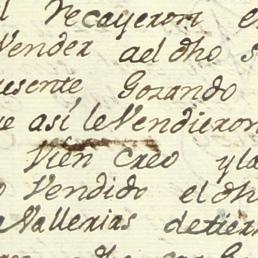 l recayeron e
Vender ael dho s
resente Gozando
e así le Vendieron
Vien creo y la
o Vendido el dh
Vallerias de tier